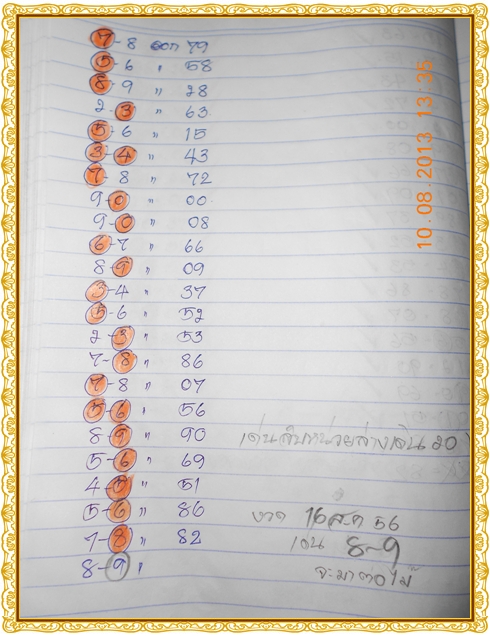 7-8 ออก 79
5-6 " 58
8-9 " 28
2-3 " 63
5-6 " 15
3-4 " 43
7-8 " 72
9-0 " 00
9-0 " 08
6-7 " 66
8-9 " 09
3-4 " 37
5-6 " 52
2-3 " 53
7-8 " 86
7-8 " 07
5-6 " 56
8-9 " 90
5-6 " 69
4-5 " 51
5-6 " 86
7-8 " 82
8-9 "
เด่นสิบหน่วยล่างเดิน 20
งวด 16 ส.ค 56
เดิน 8-9
จะมาต่อไม้
10.08.2013 13:35